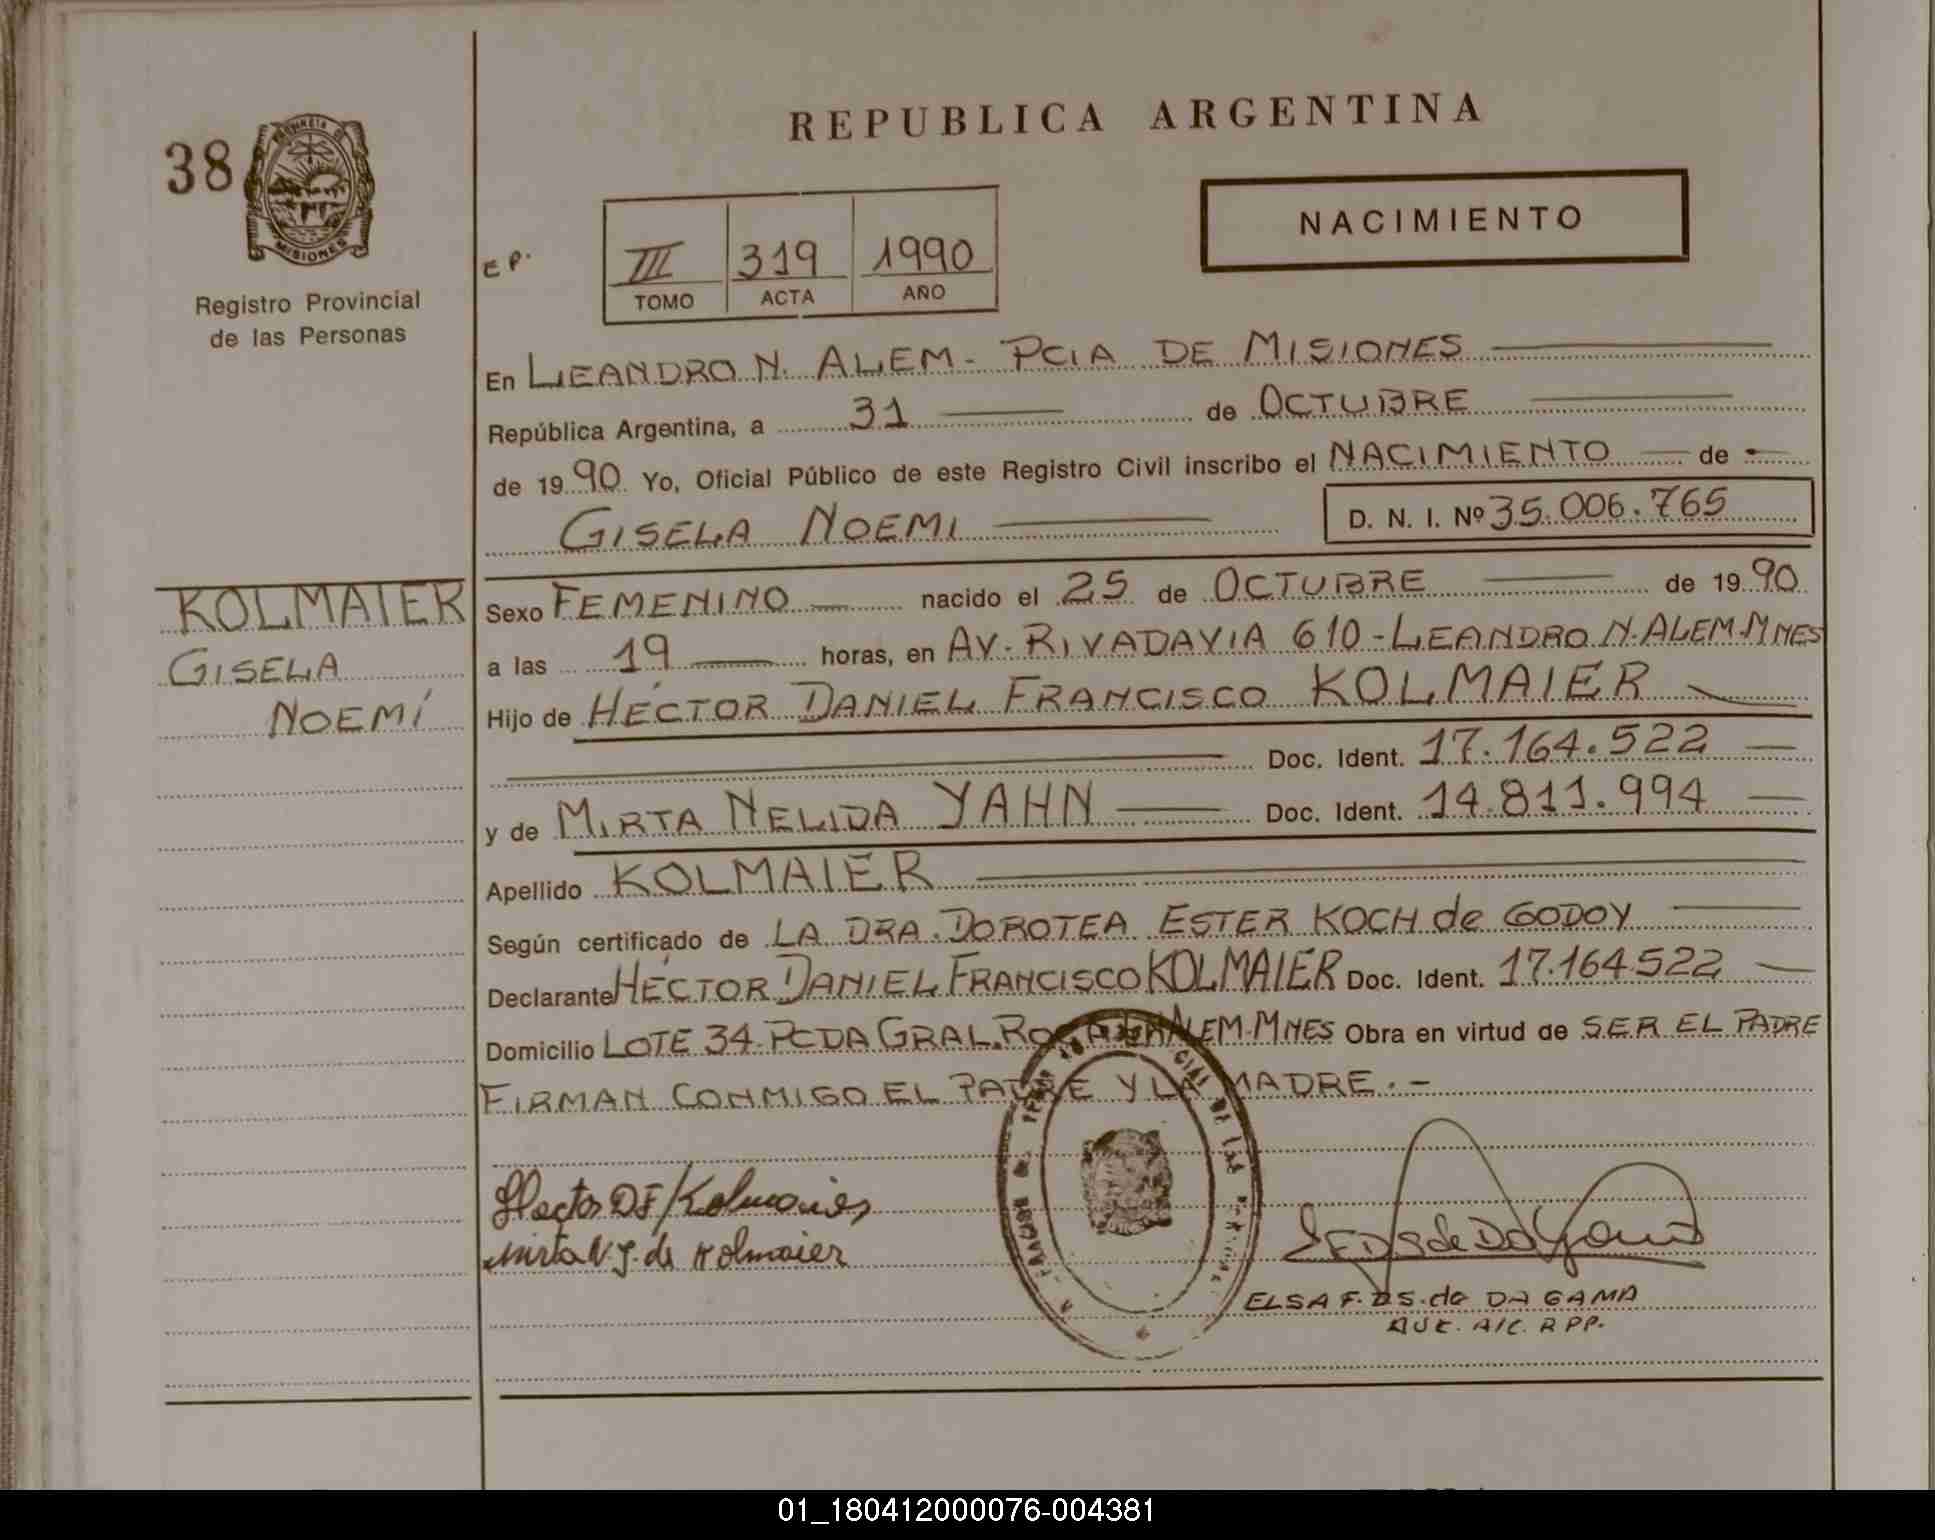 REPUBLICA ARGENTINA
38
PROVINCIA DE
MISIONES
Registro Provincial
de las Personas
NACIMIENTO
E P.
III 319 1990
TOMO ACTA AÑO
En LEANDRO N. ALEM - PCIA DE MISIONES
República Argentina, a 31 de OCTUBRE
de 1990 Yo, Oficial Público de este Registro Civil inscribo el NACIMIENTO de
GISELA NOEMI D. N. I. Nº 35.006.765
KOLMAIER
GISELA
NOEMÍ
Sexo FEMENINO nacido el 25 de OCTUBRE de 1990
a las 19 horas, en AV. RIVADAVIA 610 - LEANDRO N. ALEM-MNES
Hijo de HÉCTOR DANIEL FRANCISCO KOLMAIER
Doc. Ident. 17.164.522
y de MIRTA NELIDA YAHN Doc. Ident. 14.811.994
Apellido KOLMAIER
Según certificado de LA DRA. DOROTEA ESTER KOCH de GODOY
Declarante HÉCTOR DANIEL FRANCISCO KOLMAIER Doc. Ident. 17.164.522
Domicilio LOTE 34-PCDA GRAL. ROCA ALEM-MNES Obra en virtud de SER EL PADRE
FIRMAN CONMIGO EL PADRE Y LA MADRE.-
Hector DF Kolmaier
Mirta N. Y. de Kolmaier
ELSA F. DS. de DA GAMA
AUX. A/C. RPP.
01_180412000076-004381